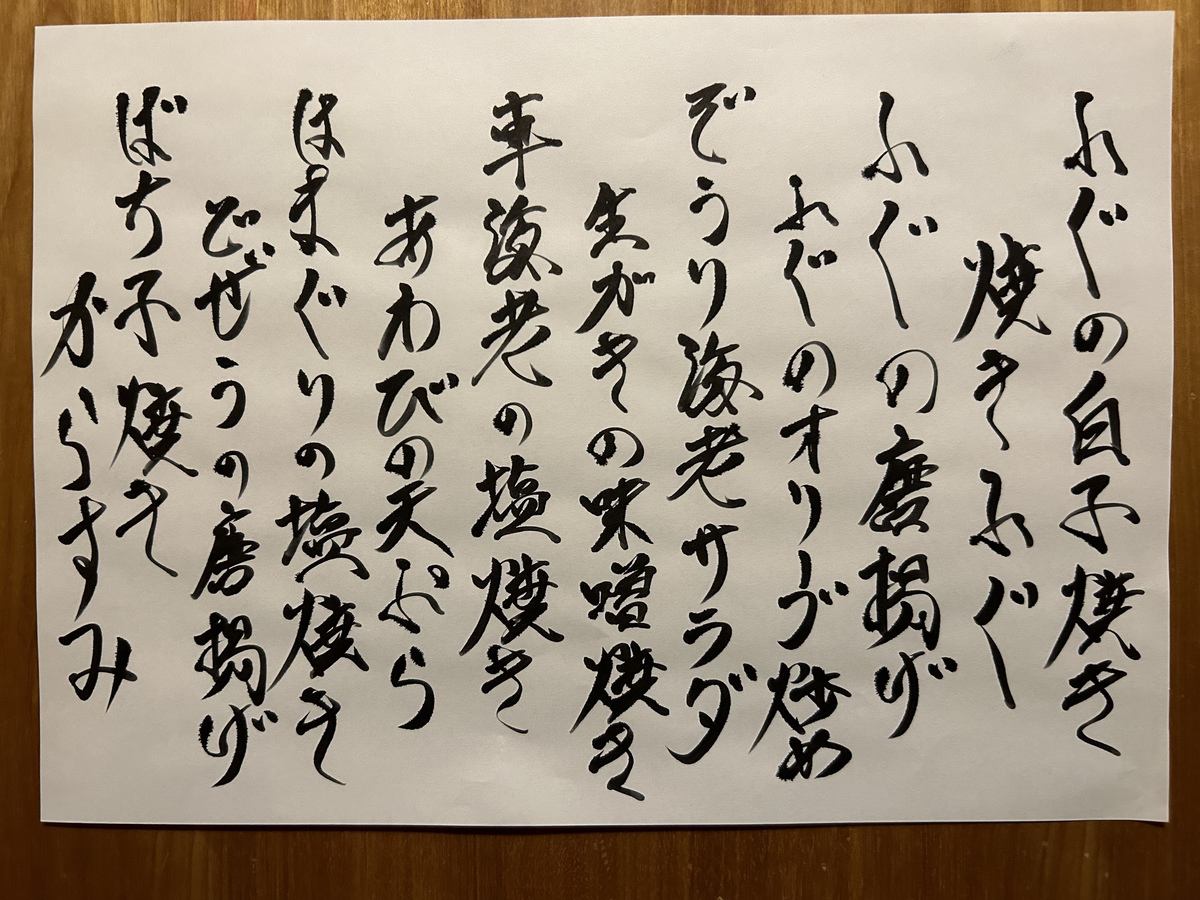 ふぐの白子焼き
焼きふぐ
ふぐの唐揚げ
ふぐのオリーブ炒め
ぞうり海老サラダ
生がきの味噌焼き
車海老の塩焼き
あわびの天ぷら
はまぐりの塩焼き
どぜうの唐揚げ
ばち子焼き
からすみ